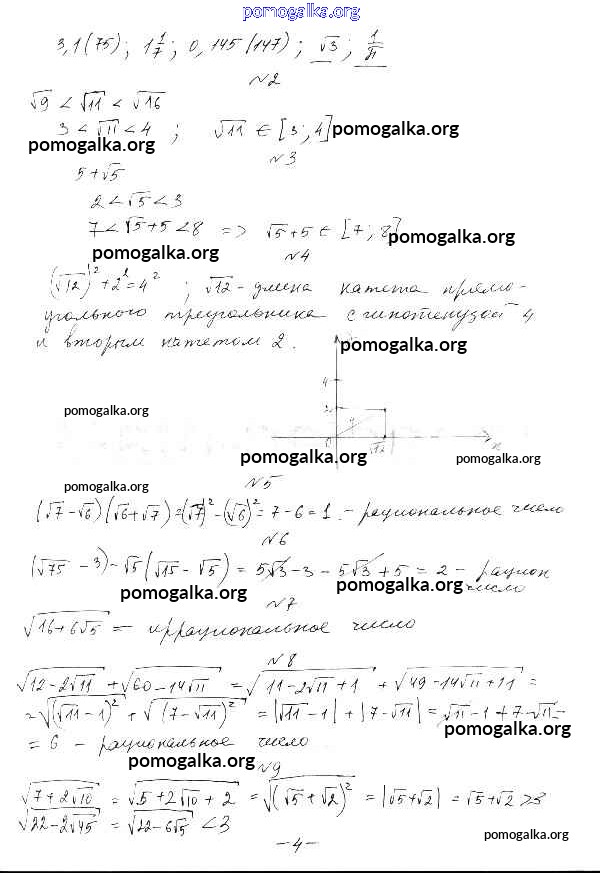 pomogalka.org
3,1(75); 1 1/7; 0,145(147); √3; 1/π
№2
√9 < √11 < √16
3 < √11 < 4 ; √11 ∈ [3; 4] pomogalka.org
pomogalka.org
№3
5+√5
2 < √5 < 3
7 < √5+5 < 8 => √5+5 ∈ [7; 8] pomogalka.org
pomogalka.org
№4
(√12)²+2²=4² ; √12 - длина катета прямо-
угольного треугольника с гипотенузой 4
и вторым катетом 2.
pomogalka.org
4
pomogalka.org
2
4
0 √12 x
pomogalka.org pomogalka.org
pomogalka.org
№5
(√7-√6)(√6+√7)=(√7)²-(√6)²=7-6=1 - рациональное число
№6
(√75 - 3) - √5(√15 - √5) = 5√3 - 3 - 5√3 + 5 = 2 - рацион
число
pomogalka.org pomogalka.org
№7
√16+6√5 = иррациональное число
№8
√12-2√11 + √60-14√11 = √11-2√11+1 + √49-14√11+11 =
= √(√11-1)² + √(7-√11)² = |√11-1| + |7-√11| = √11-1+7-√11=
pomogalka.org
= 6 - рациональное число
pomogalka.org
№9
√7+2√10 = √5+2√10+2 = √(√5+√2)² = |√5+√2| = √5+√2 >3
√22-2√45 = √22-6√5 < 3
pomogalka.org
-4-